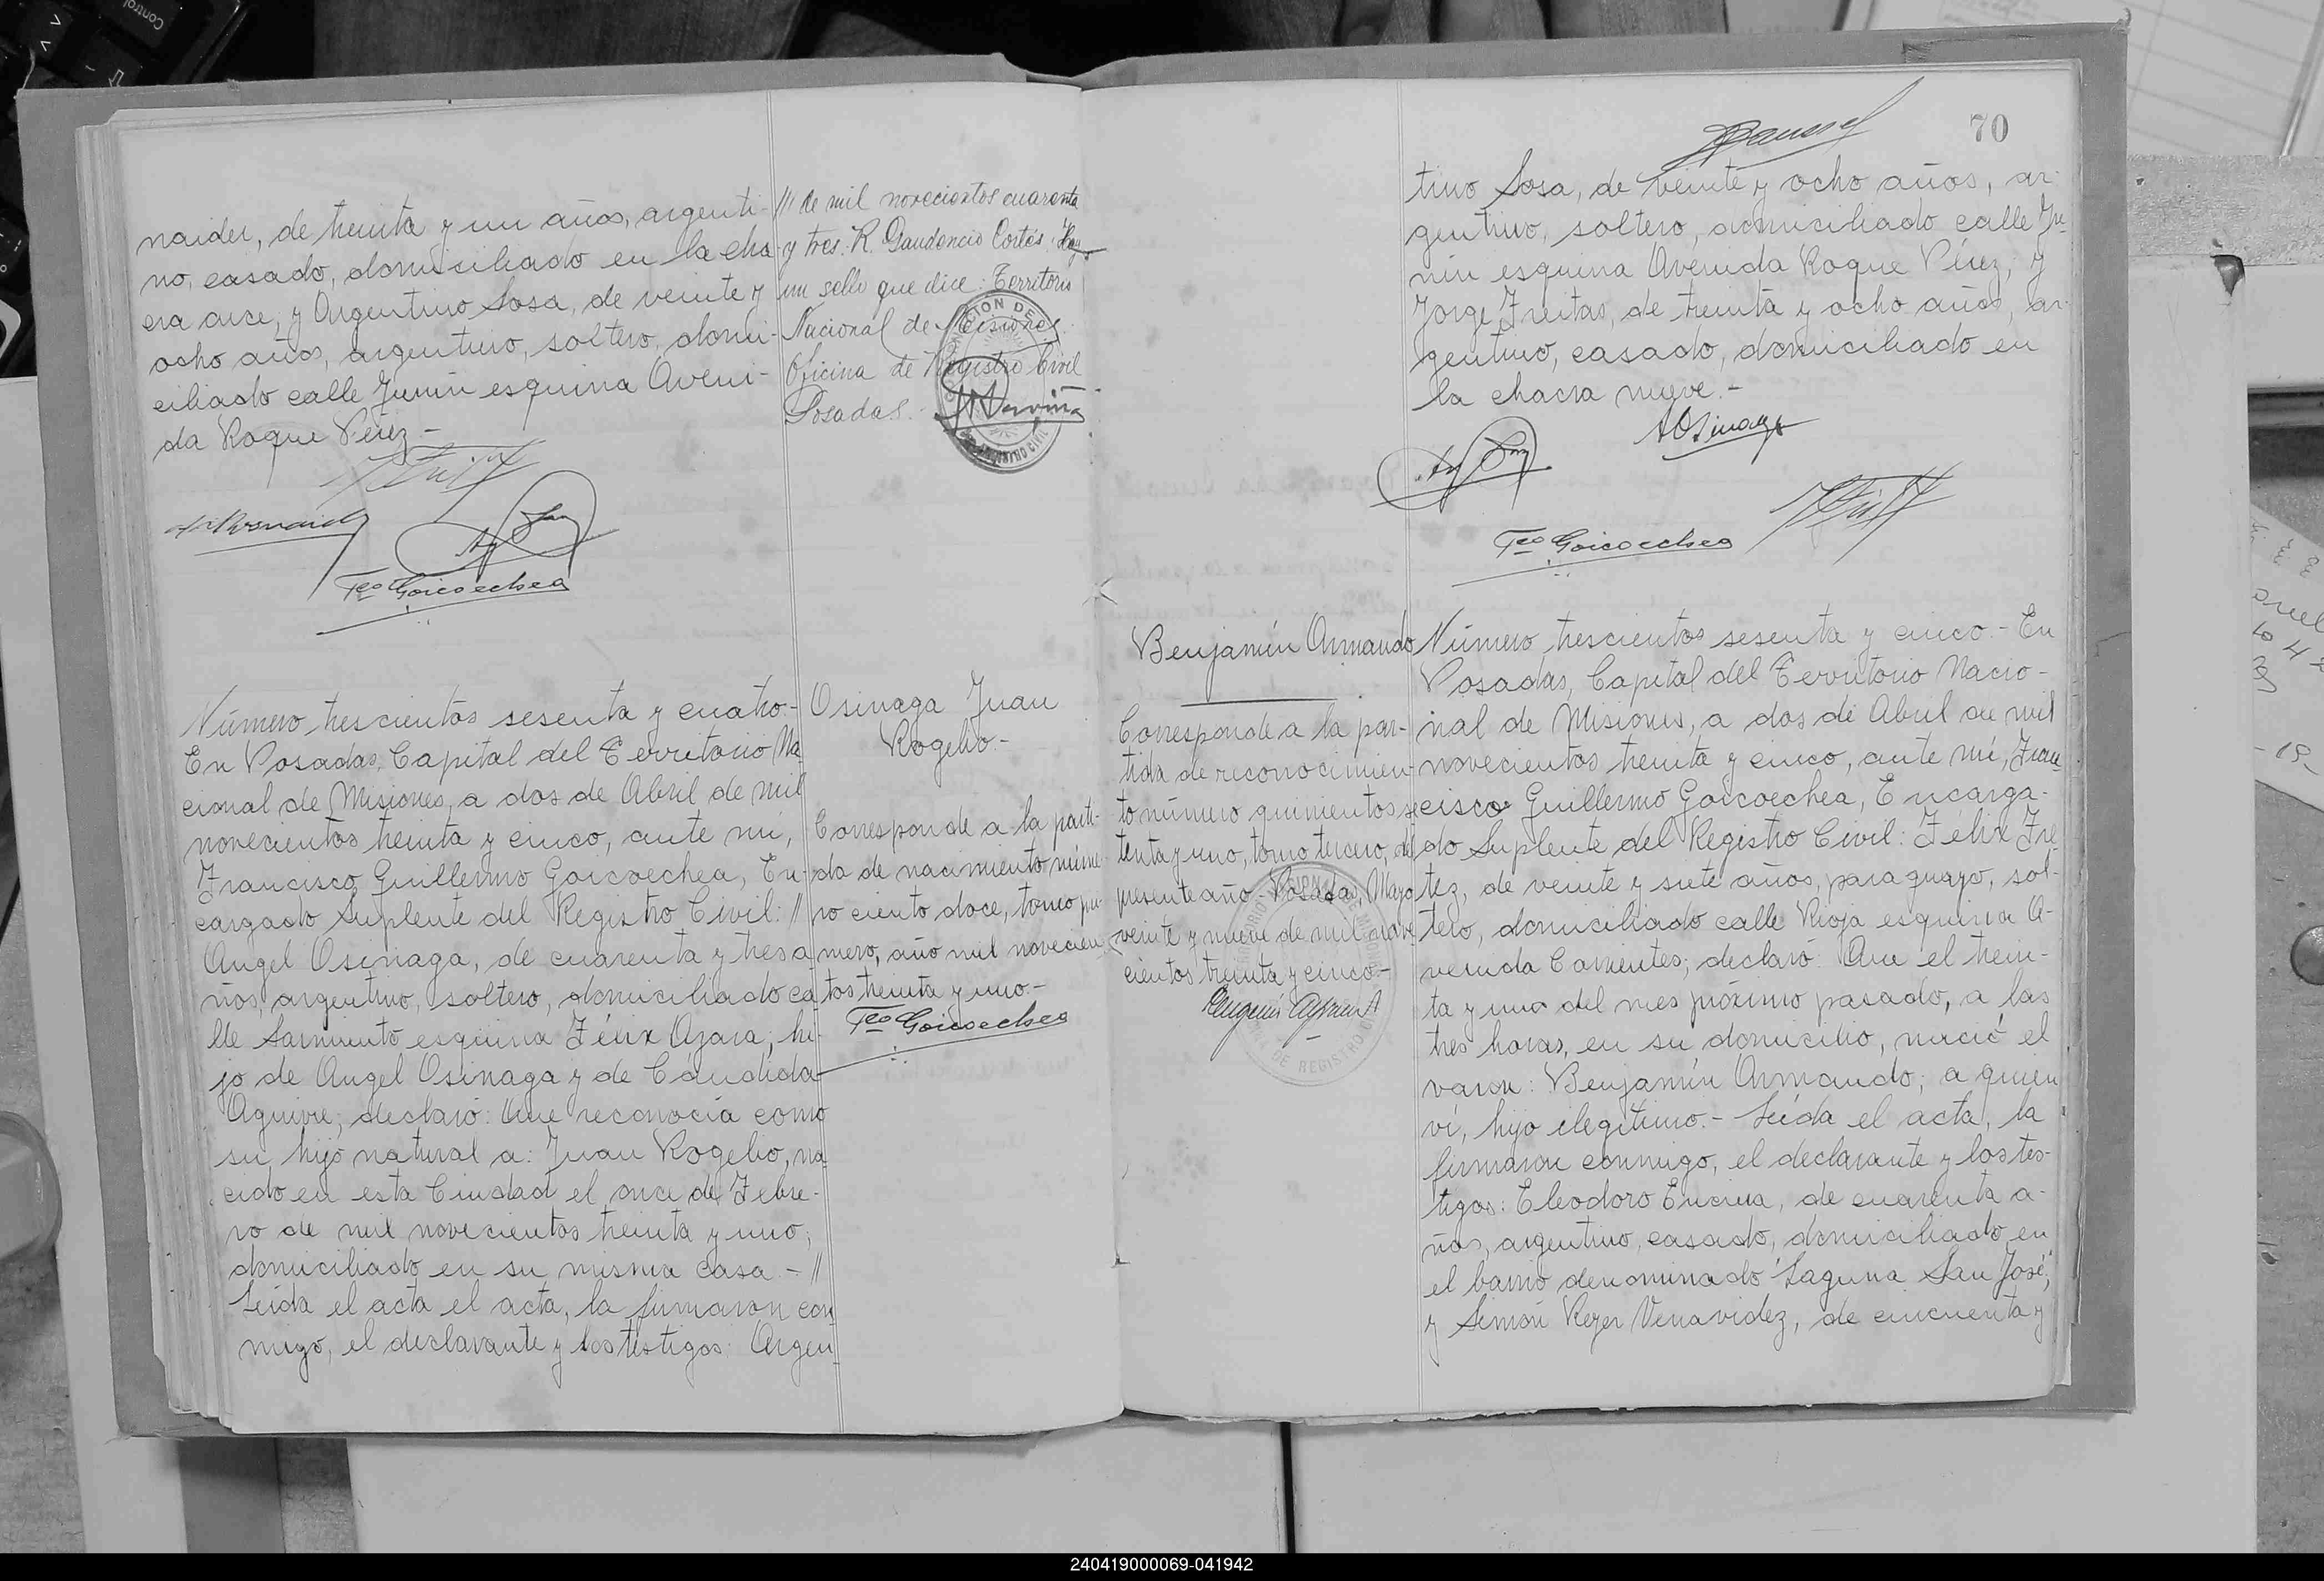 naider, de treinta y un años, argenti-
no, casado, domiciliado en la cha-
cra once, y Argentino Sosa, de veinte y
ocho años, argentino, soltero, domi-
ciliado calle Junín esquina Aveni-
da Roque Pérez.-
Fco Goicoechea
/// de mil novecientos cuarenta
y tres. R. Gaudencio Cortés. Hay
un sello que dice: Territorio
Nacional de Misiones.
Oficina de Registro Civil
Posadas.-
Número trescientos sesenta y cuatro.-
En Posadas, Capital del Territorio Na-
cional de Misiones, a dos de Abril de mil
novecientos treinta y cinco, ante mí,
Francisco Guillermo Goicoechea, En-
cargado Suplente del Registro Civil: //
Angel Osinaga, de cuarenta y tres a-
ños, argentino, soltero, domiciliado ca-
lle Sarmiento esquina Félix Azara, hi-
jo de Angel Osinaga y de Cándida
Aguirre, declaró: Que reconocía como
su hijo natural a: Juan Rogelio, na-
cido en esta Ciudad el once de Febre-
ro de mil novecientos treinta y uno;
domiciliado en su misma casa.- //
Leída el acta el acta, la firmaron con-
migo, el declarante y los testigos: Argen-
Osinaga Juan
Rogelio.-
Corresponde a la parti-
da de nacimiento núme-
ro ciento doce, tomo pri-
mero, año mil novecien-
tos treinta y uno.-
Fco Goicoechea
70
tino Sosa, de veinte y ocho años, ar-
gentino, soltero, domiciliado calle Ju-
nín esquina Avenida Roque Pérez; y
Jorge Freitas, de treinta y ocho años, ar-
gentino, casado, domiciliado en
la chacra nueve.-
AOsinaga
Fco Goicoechea
Benjamín Armando
Corresponde a la par-
tida de reconocimien-
to número quinientos se-
tenta y uno, tomo tercero, del
presente año.- Posadas, Mayo
veinte y nueve de mil nove-
cientos treinta y cinco.-
Número trescientos sesenta y cinco.- En
Posadas, Capital del Territorio Nacio-
nal de Misiones, a dos de Abril de mil
novecientos treinta y cinco, ante mí, Fran-
cisco Guillermo Goicoechea, Encarga-
do Suplente del Registro Civil: Félix Fre-
tez, de veinte y siete años, paraguayo, sol-
tero, domiciliado calle Rioja esquina A-
venida Corrientes; declaró: Que el trein-
ta y uno del mes próximo pasado, a las
tres horas, en su domicilio, nació el
varon: Benjamín Armando; a quien
ví, hijo ilegítimo.- Leída el acta, la
firmaron conmigo, el declarante y los tes-
tigos: Eleodoro Encina, de cuarenta a-
ños, argentino, casado, domiciliado en
el barrio denominado "Laguna San José",
y Simón Reyes Venavidez, de cincuenta y
240419000069-041942